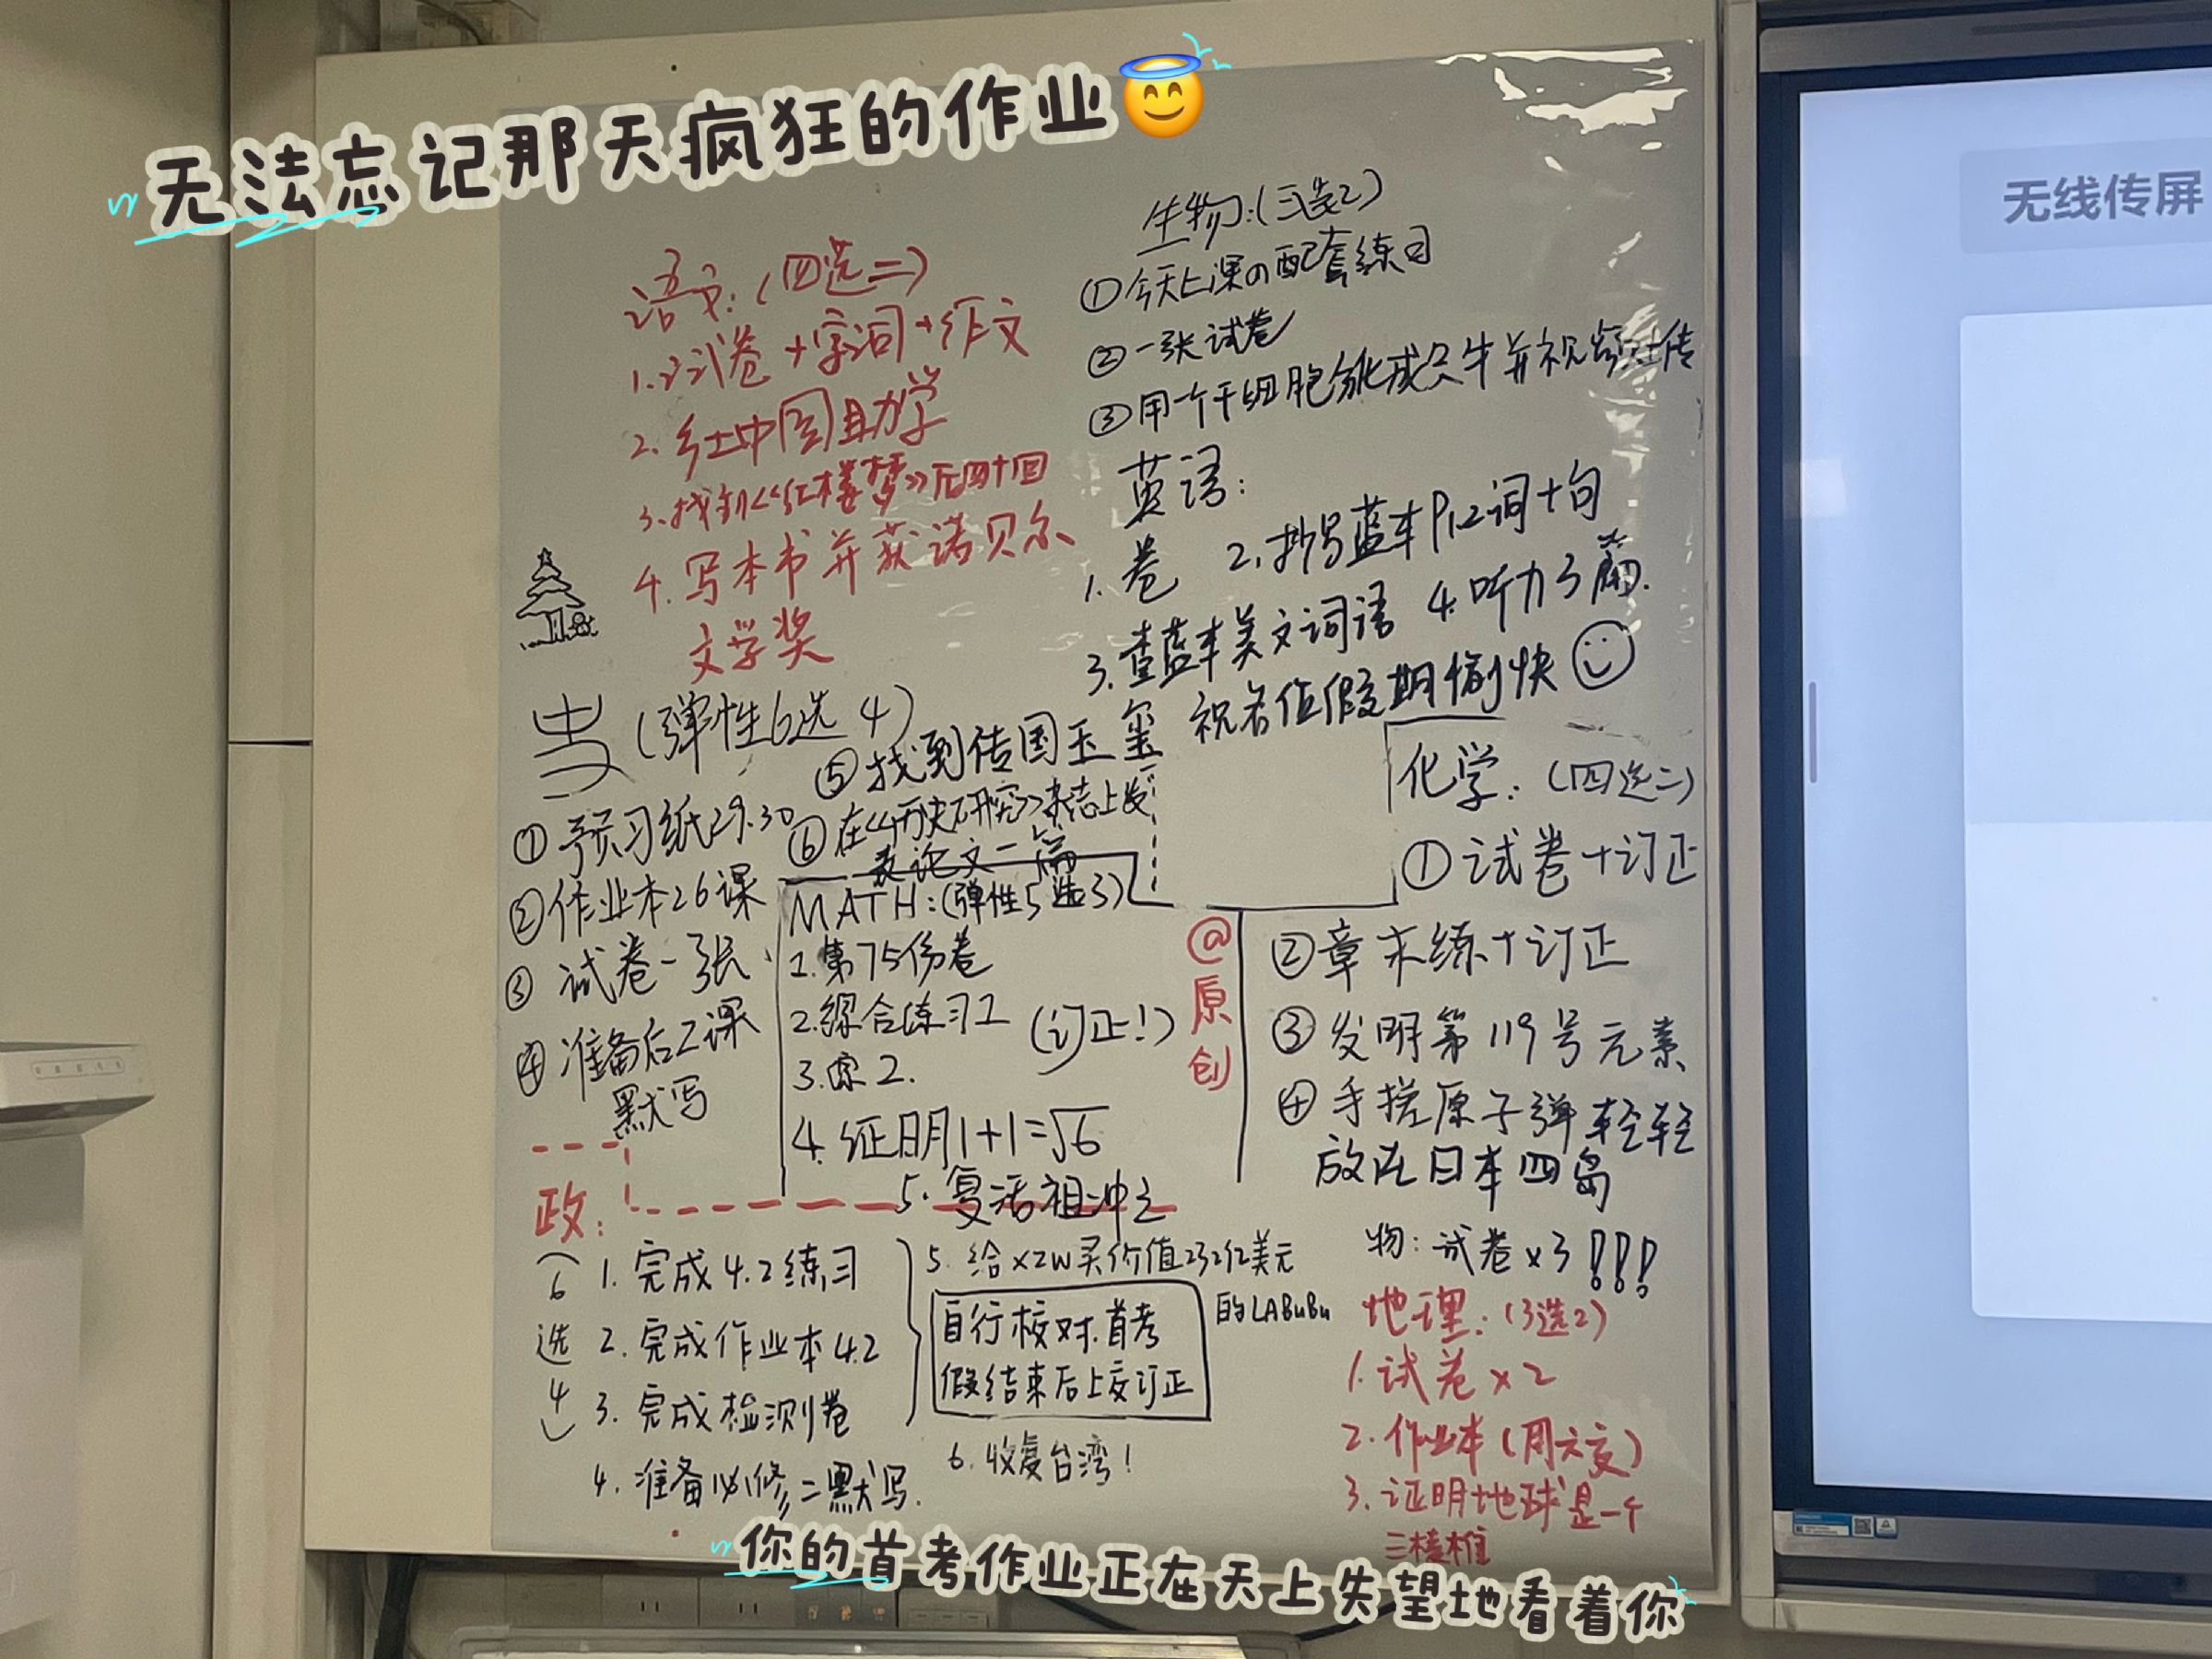 无法忘记那天疯狂的作业
无线传屏
语文:(四选二)
1.试卷+字词+作文
2.乡土中国助学
3.找到《红楼梦》后四十回
4.写本书并获诺贝尔
文学奖
生物:(三选2)
①今天上课の配套练习
②一张试卷
③用一个干细胞分化成只牛并视频上传
英语:
1.卷 2.抄写蓝本P12词+句
3.查蓝本美文词语 4.听力3篇.
祝各位假期愉快
史(弹性6选4)
①预习纸29.30
②作业本26课
③试卷一张
④准备后2课
默写
⑤找到传国玉玺
⑥在《历史研究》杂志上发
表论文一篇
MATH:(弹性5选3)
1.第75份卷
2.综合练习1
3.综2.
(订正!)
4.证明1+1=√6
5.复活祖冲之
@原创
化学:(四选二)
①试卷+订正
②章末练+订正
③发明第119号元素
④手搓原子弹轻轻
放在日本四岛
政:
(6选4)
1.完成4.2练习
2.完成作业本4.2
3.完成检测卷
4.准备必修二默写.
5.给xzw买价值232亿美元
的LABuBu
自行校对.首考
假结束后上交订正
6.收复台湾!
物:试卷x3!!!
地理:(3选2)
1.试卷x2
2.作业本(周六交)
3.证明地球是一个
三棱椎
你的首考作业正在天上失望地看着你